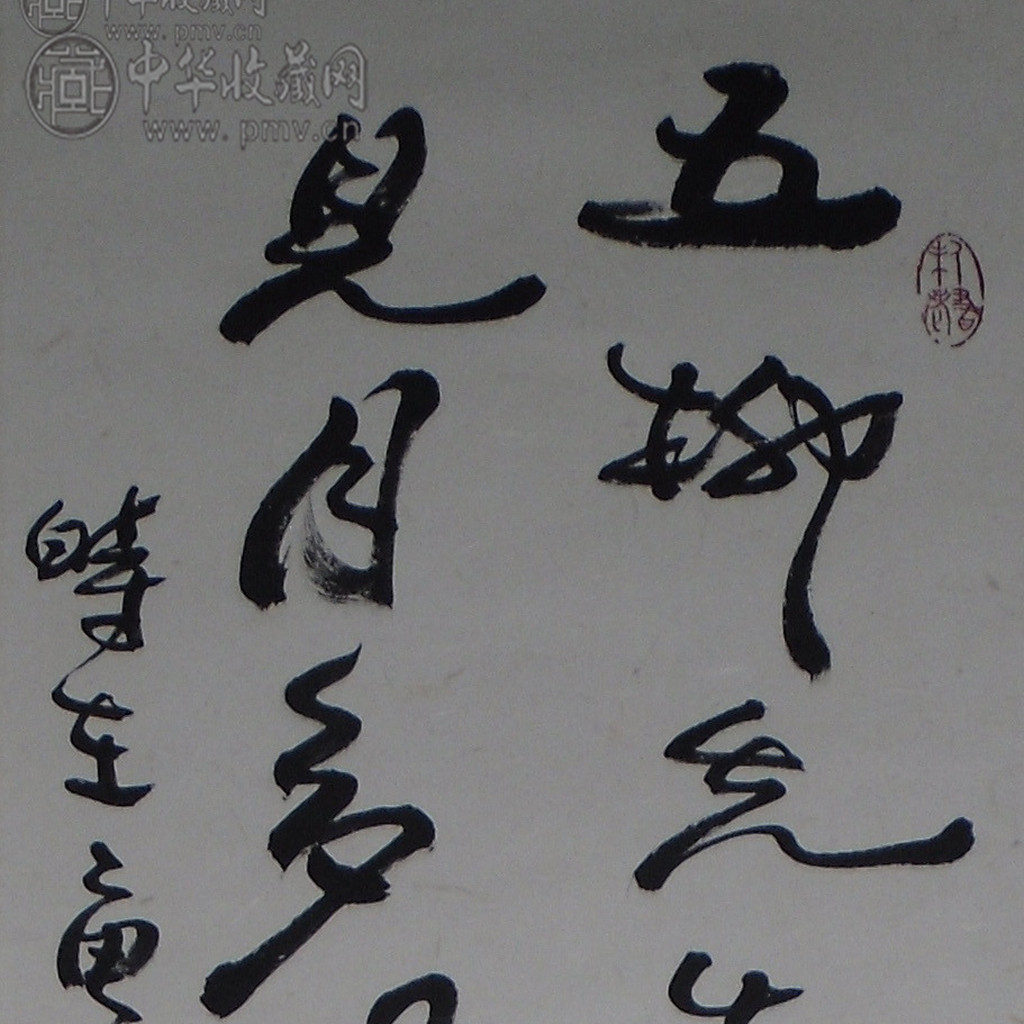 中华收藏网
www.pmv.cn
中华收藏网
www.pmv.cn
五柳先生
見月多
時在